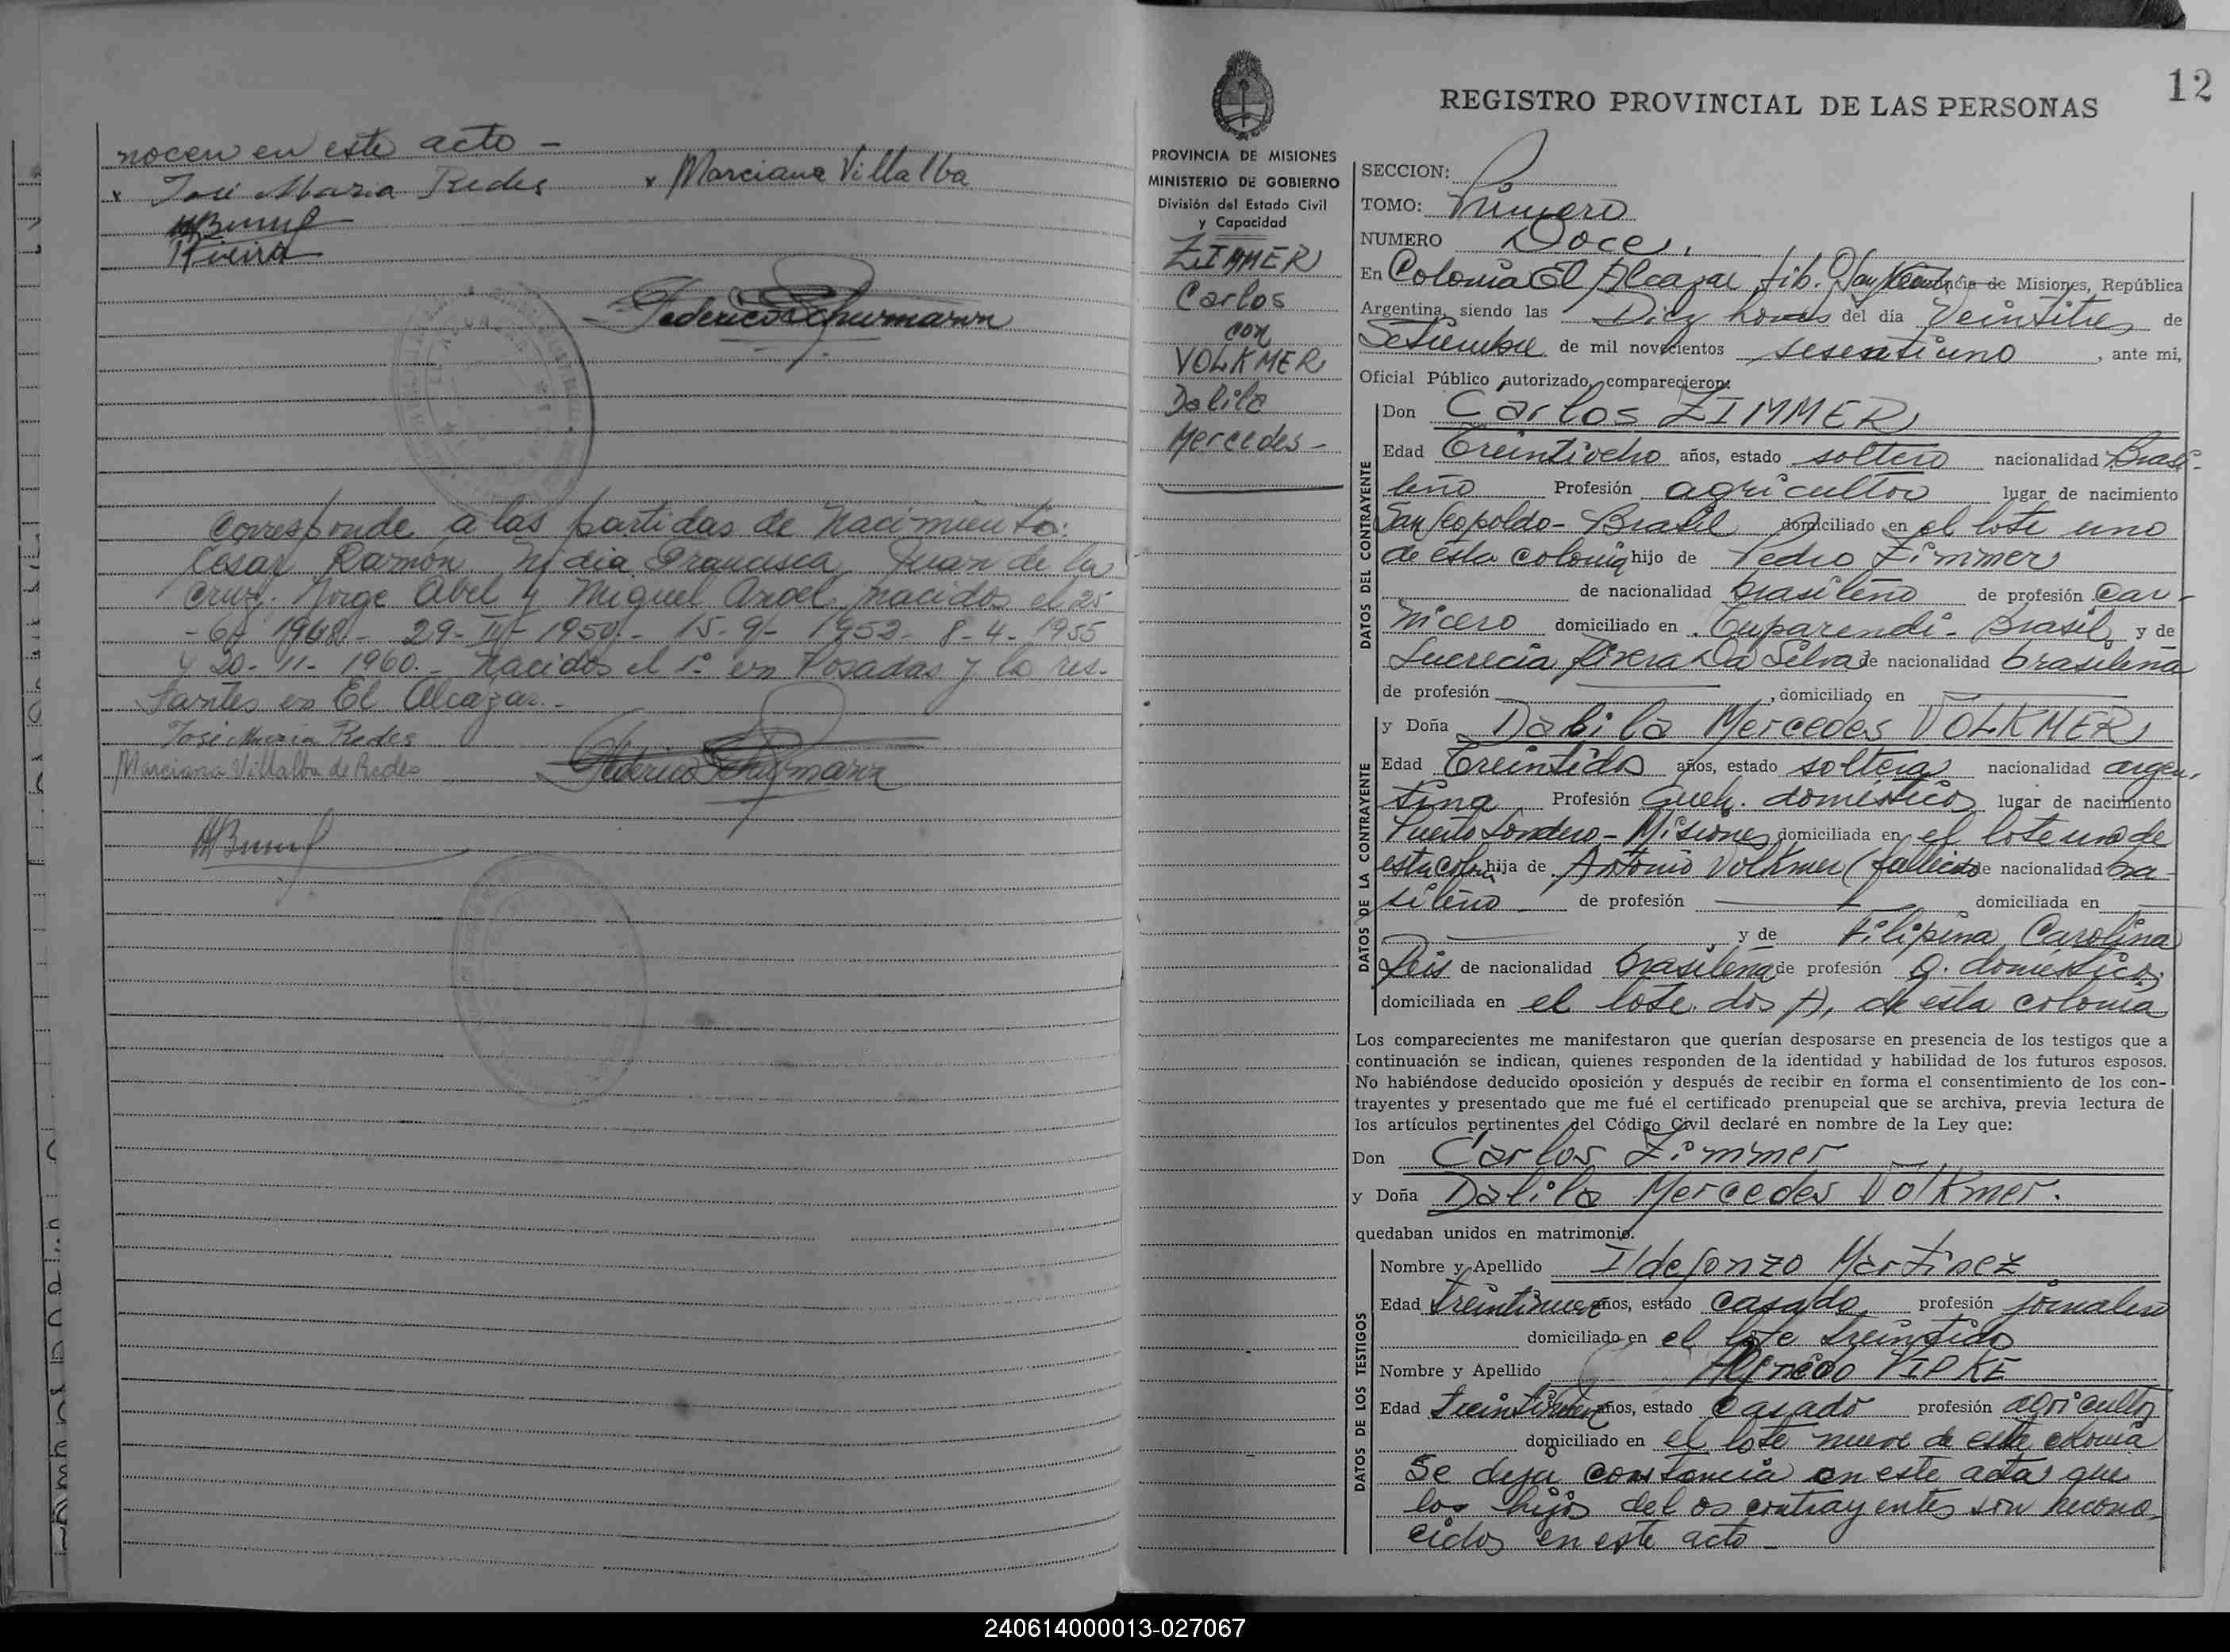 nocen en este acto -
x José Maria Redes x Marciana Villalba
Federico Schurmann
Corresponde a las partidas de Nacimiento:
Cesar Ramón, Nidia Francisca, Juan de la
Cruz, Jorge Abel y Miguel Angel nacidos el 25
- 6 - 1948 - 29 - - 1950 - 15 - 9 - 1952 - 8 - 4 - 1955
y 20 - 11 - 1960. - Nacidos el 1º en Posadas y los res-
tantes en El Alcazar. -
José Maria Redes
Marciana Villalba de Redes
Federico Schurmann
12
REGISTRO PROVINCIAL DE LAS PERSONAS
PROVINCIA DE MISIONES
MINISTERIO DE GOBIERNO
División del Estado Civil
y Capacidad
ZIMMER
Carlos
con
VOLKMER
Dalila
Mercedes -
SECCION:
TOMO: Primero
NUMERO Doce.
En Colonia El Alcazar, Lib. Gral San Martin, Provincia de Misiones, República
Argentina, siendo las Diez horas del día Veintitres de
Setiembre de mil novecientos sesentiuno, ante mi,
Oficial Público autorizado, comparecieron:
DATOS DEL CONTRAYENTE
Don Carlos ZIMMER
Edad Treintiocho años, estado soltero nacionalidad Brasi-
leño Profesión agricultor lugar de nacimiento
San Leopoldo - Brasil domiciliado en el lote uno
de esta colonia hijo de Pedro Zimmer
de nacionalidad brasileño de profesión Car-
nicero domiciliado en Tuparendi - Brasil, y de
Lucrecia Da Silva de nacionalidad brasileña
de profesión , domiciliado en
DATOS DE LA CONTRAYENTE
y Doña Dalila Mercedes VOLKMER
Edad Treintidos años, estado soltera nacionalidad argen-
tina Profesión Queh. domésticos lugar de nacimiento
Puerto Londero - Misiones domiciliada en el lote uno de
esta colonia hija de Antonio Volkmer (fallecido de nacionalidad bra-
sileño de profesión domiciliada en
y de Filipina Carolina
Reis de nacionalidad brasileña de profesión Q. domésticos
domiciliada en el lote dos A, de esta colonia
Los comparecientes me manifestaron que querían desposarse en presencia de los testigos que a
continuación se indican, quienes responden de la identidad y habilidad de los futuros esposos.
No habiéndose deducido oposición y después de recibir en forma el consentimiento de los con-
trayentes y presentado que me fué el certificado prenupcial que se archiva, previa lectura de
los artículos pertinentes del Código Civil declaré en nombre de la Ley que:
Don Carlos Zimmer
y Doña Dalila Mercedes Volkmer.
quedaban unidos en matrimonio.
DATOS DE LOS TESTIGOS
Nombre y Apellido Ildefonzo Martinez
Edad treintinueve años, estado casado profesión jornalero
domiciliado en el lote treintidos
Nombre y Apellido Alfredo VIPKE
Edad años, estado Casado profesión agricultor
domiciliado en el lote nueve de esta colonia
Se deja constancia en este acta que
los hijos de los contrayentes son recono-
cidos en este acto -
240614000013-027067